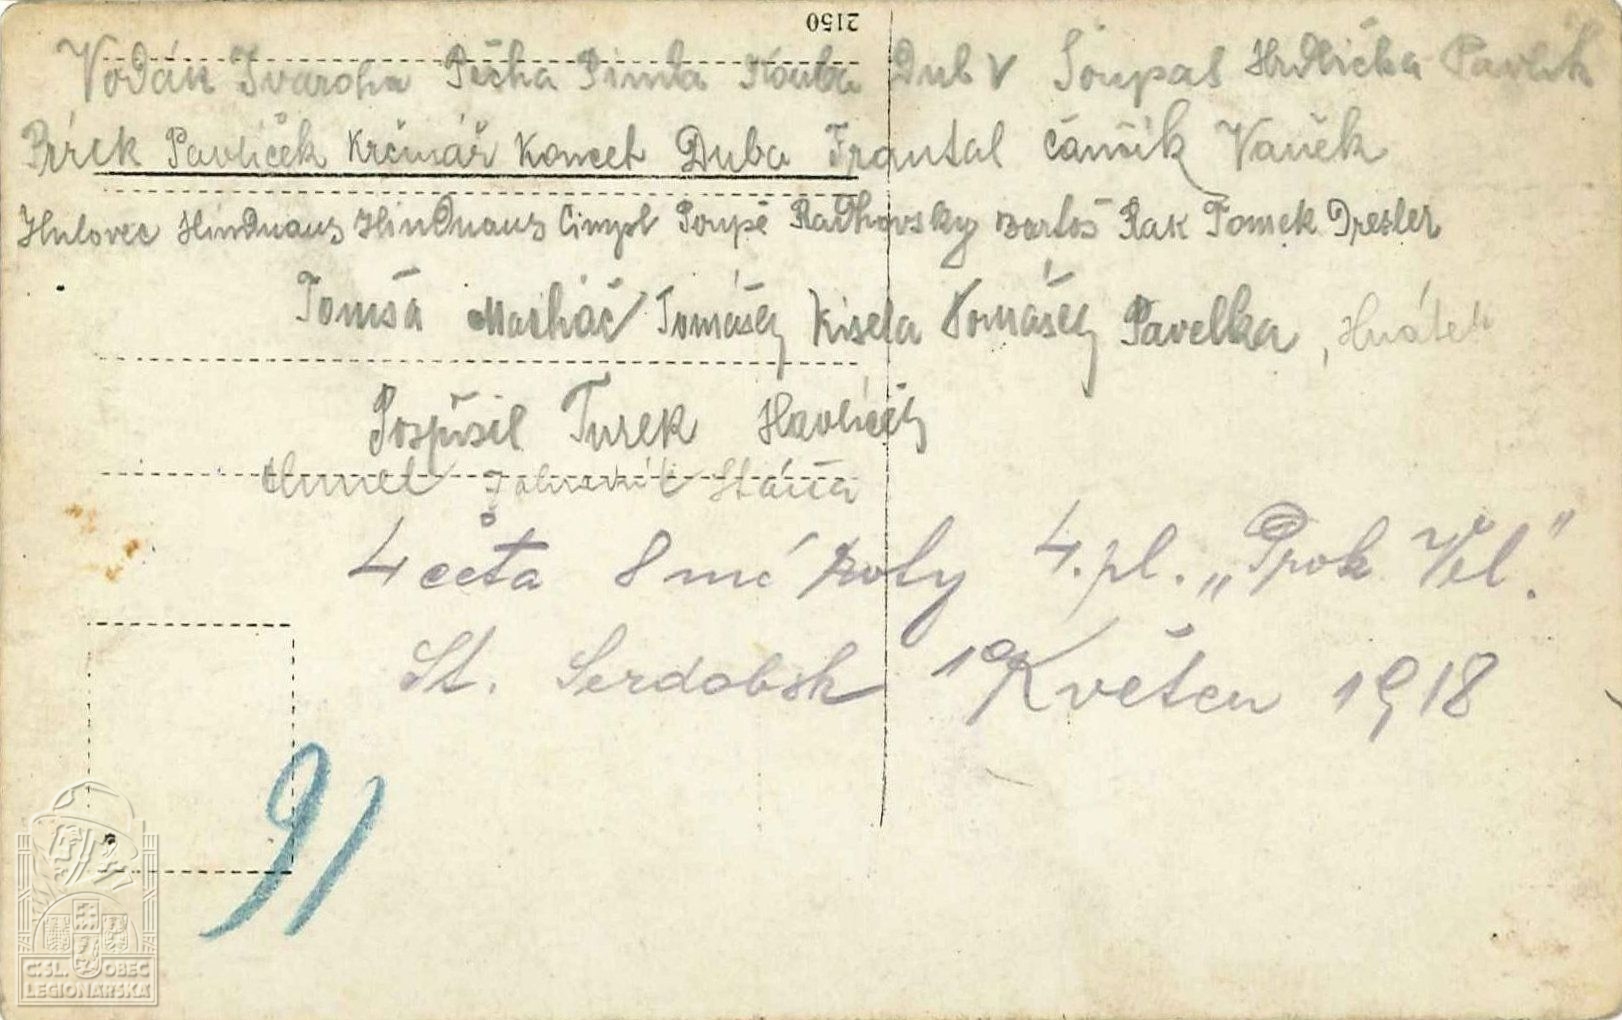 2150
Vodán Tvaroha Pícha Pimla Kouba Dub V Soupal Hrdlička Pavlík
Pavlíček Krčmář Koncel Duba Frantal Čámlík Vaněk
Hulovec Hindhaus Hindhaus Cimpl Poupě Radhovsky Bartoš Rak Tomek Dresler
Tomsa Macháč Tomášek Kisela Tomášek Pavelka, Hnátek
Pospíšil Turek Havlíček
Hunel Stáňa
4 četa 8 mé roty 4. pl. „Prok Vel."
St. Serdobsk 1º Květen 1918
91
Č. SL. OBEC
LEGIONÁŘSKÁ